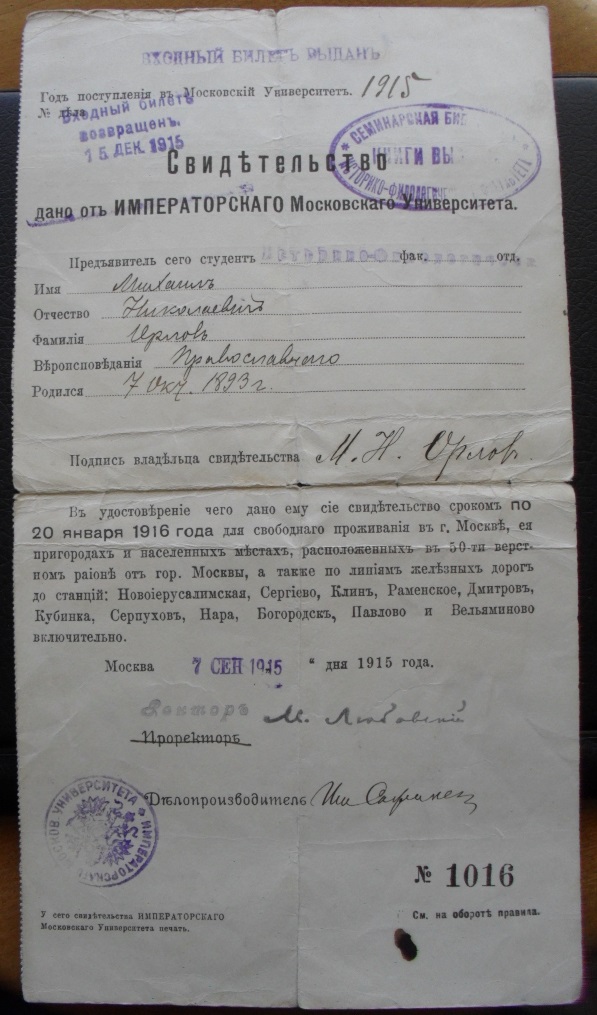 ВХОДНЫЙ БИЛЕТЪ ВЫДАНЪ
Годъ поступленія въ Московскій Университетъ. 1915
№ дѣла
Входный билетъ
возвращенъ.
15 ДЕК. 1915
СЕМИНАРСКАЯ БИБ
КНИГИ ВЫ
ИСТОРИКО-ФИЛОЛОГИЧЕС
Свидѣтельство
дано отъ ИМПЕРАТОРСКАГО Московскаго Университета.
Предъявитель сего студентъ Историко-Филологическ фак. отд.
Имя Михаилъ
Отчество Николаевичъ
Фамилія Орловъ
Вѣроисповѣданія Православнаго
Родился 7 Окт. 1893 г.
Подпись владѣльца свидѣтельства М. Н. Орлов.
Въ удостовѣреніе чего дано ему сіе свидѣтельство срокомъ по
20 января 1916 года для свободнаго проживанія въ г. Москвѣ, ея
пригородахъ и населенныхъ мѣстахъ, расположенныхъ въ 50-ти верст-
номъ раіонѣ отъ гор. Москвы, а также по линіямъ желѣзныхъ дорогъ
до станцій: Новоіерусалимская, Сергіево, Клинъ, Раменское, Дмитровъ,
Кубинка, Серпуховъ, Нара, Богородскъ, Павлово и Вельяминово
включительно.
Москва 7 СЕН 1915 " дня 1915 года.
Ректоръ М. Любавскій
Проректоръ
Дѣлопроизводитель
ИМПЕРАТОРСКАГО МОСКОВ УНИВЕРСИТЕТА
№ 1016
У сего свидѣтельства ИМПЕРАТОРСКАГО
Московскаго Университета печать.
См. на оборотѣ правила.